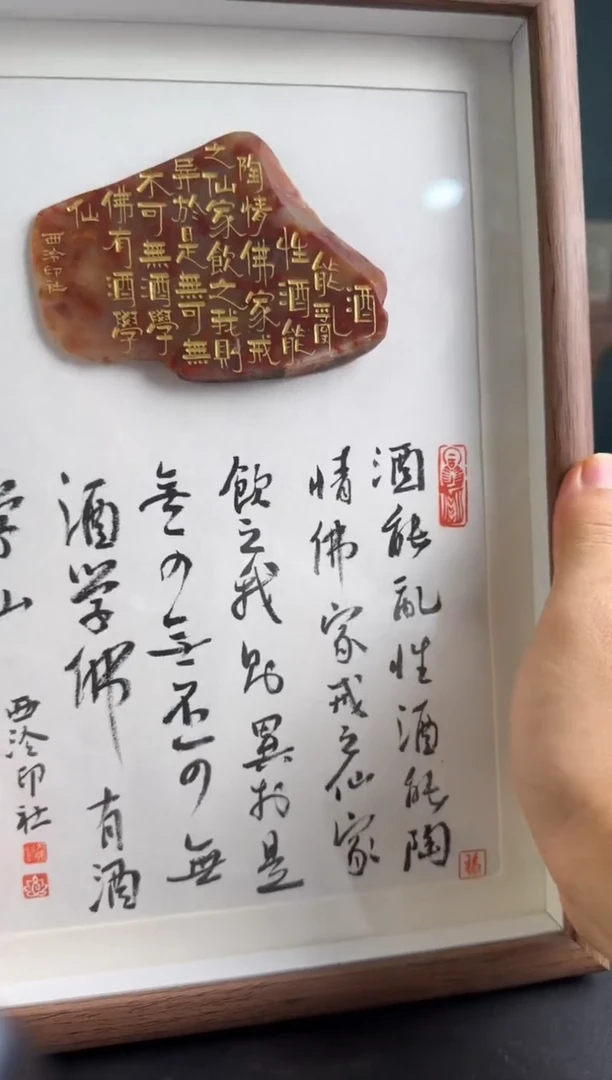 酒
能亂
性酒能
陶情佛家戒
之仙家飲之我則
異於是無可無
不可無酒學
佛有酒學
仙
西泠印社
酒能乱性酒能陶
情佛家戒之仙家
飲之我則異於是
無可無不可無
酒学佛有酒
学仙
西泠印社
福